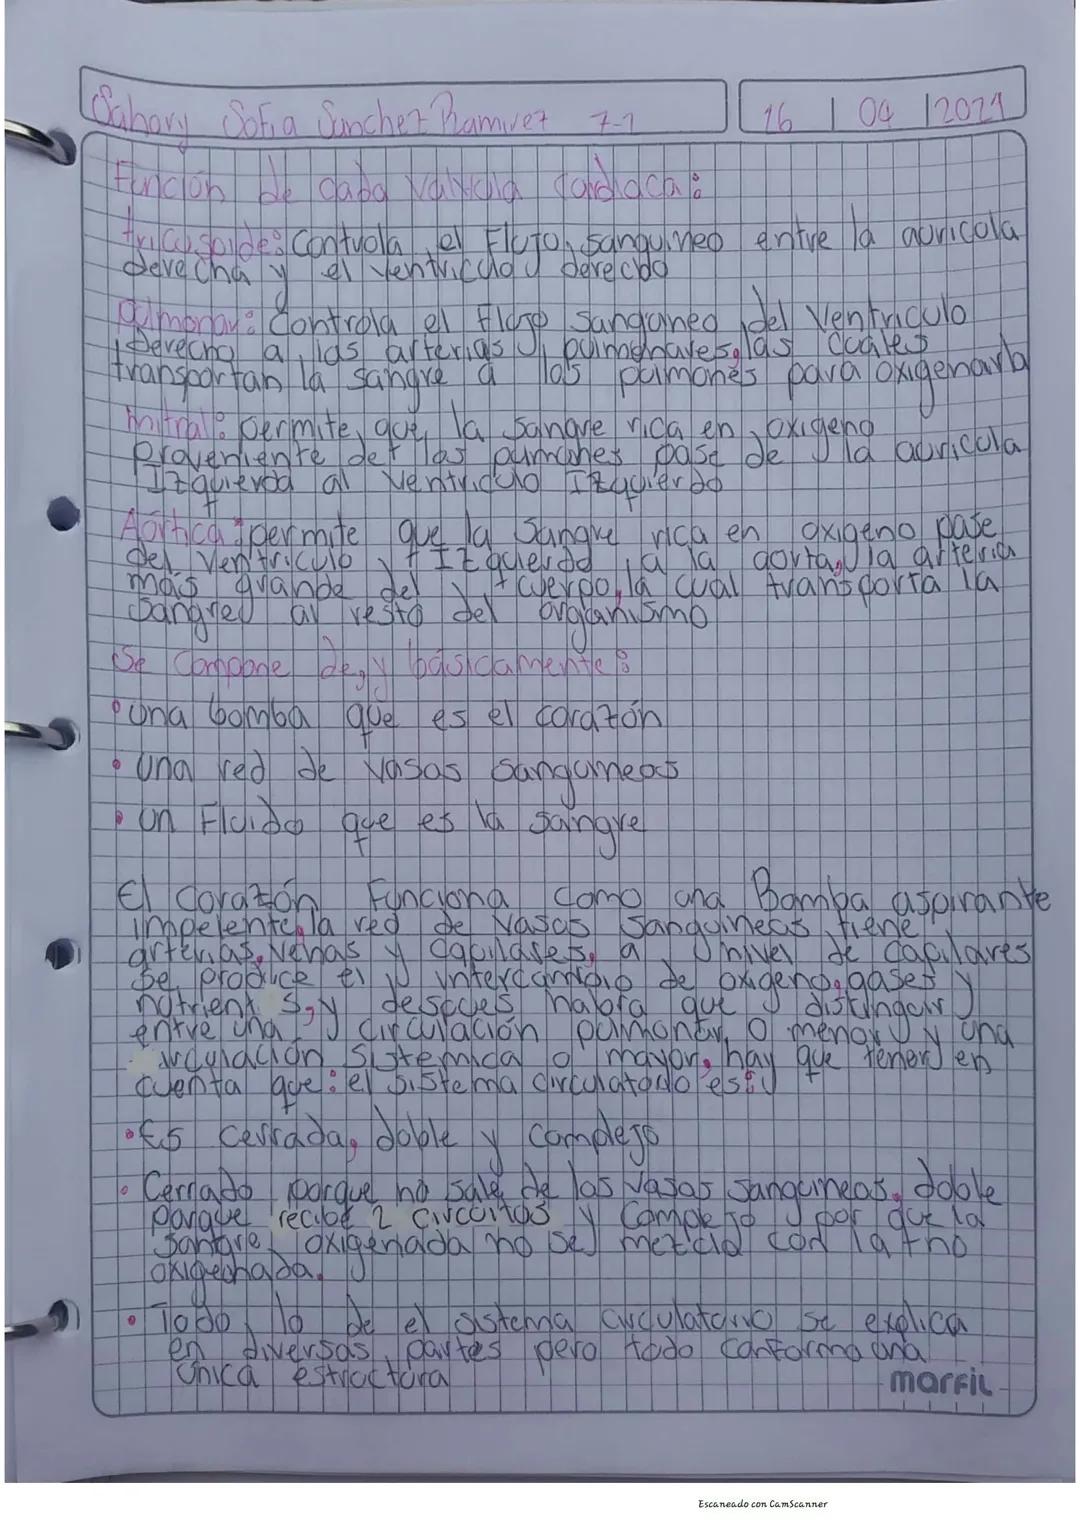 Sahory Sofia Sanchez Ramirez 7-1 16 | 04 | 2021
Función de cada valvula cardiaca:
tricuspide: Controla el Flujo sanguineo entre la auricola
derecha y el ventriculo derecho
pulmonar: Controla el flujo sanguneo del Ventriculo
Derecho a las arterias pulmonares, las cuales
transportan la sangre a los pulmones para oxigenarla
mitral: permite que la sangre rica en oxigeno
proveniente de las pulmones pase de la auricola
Izquierda al ventriculo Izquierdo
Aórtica: permite que la sangre rica en oxigeno pase
del ventriculo Izquierdo a la aorta, la arteria
más grande del cuerpo, la cual transporta la
sangre al resto del organismo
Se Compone de, y básicamente:
• una bomba que es el corazón
• una red de vasos sanguineos
• un Fluido que es la sangre
El corazón Funciona como una Bomba aspirante
impelente, la red de vasos sanguineos tiene
arterias, venas y capilares, a nivel de capilares
se produce el intercambio de oxigeno, gases y
nutrient s, y despues habra que distinguir
entre una circulación pulmonar o menor y una
irculación sistemica o mayor, hay que tener en
cuenta que: el sistema circulatorio es:
• Es cerrada, doble y complejo
• Cerrado porque no sale de los vasos sanguineos, doble
porque recibe 2 circuitos y complejo por que la
sangre oxigenada no se mezcla con la no
oxigenada.
• Todo lo de el sistema circulatorio se explica
en diversas partes pero todo conforma una
única estructura
marfil
Escaneado con CamScanner